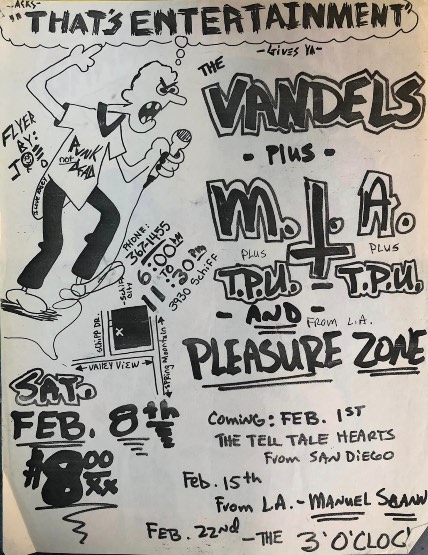 "THAT'S ENTERTAINMENT"
-Gives Ya-
THE
VANDELS
- Plus -
M.I.A.
PLUS
PLUS
T.P.U. - T.P.U.
- AND -
FROM L.A.
PLEASURE ZONE
FLYER
BY:
PUNK
not
DEAD
PHONE:
367-1455
6:00 PM
TO
11:30 PM
3930 Schiff
SCHIFF DR.
X
VALLEY VIEW
SPRING Mountain
SAT.
FEB. 8th
$8.00
XX
Coming: FEB. 1ST
THE TELL TALE HEARTS
From SAN DIEGO
Feb. 15th
From L.A. - MANUEL
FEB. 22nd - THE 3 O'CLOC